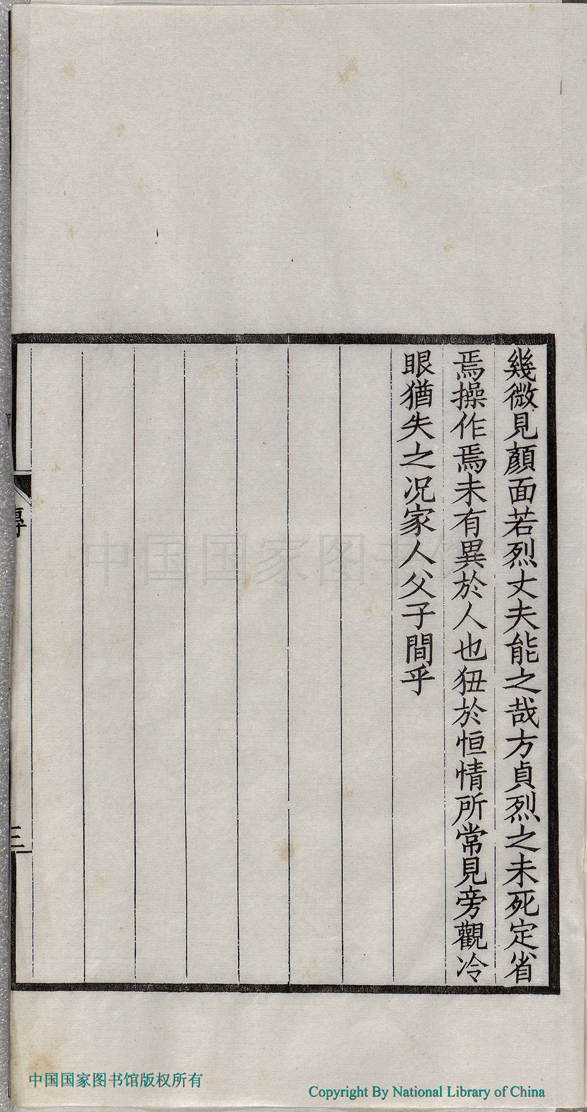 幾微見顏面若烈丈夫能之哉方貞烈之未死定省
焉操作焉未有異於人也狃於恒情所常見旁觀冷
眼猶失之况家人父子間乎
三
中国国家图书馆
中国国家图书馆版权所有
Copyright By National Library of China